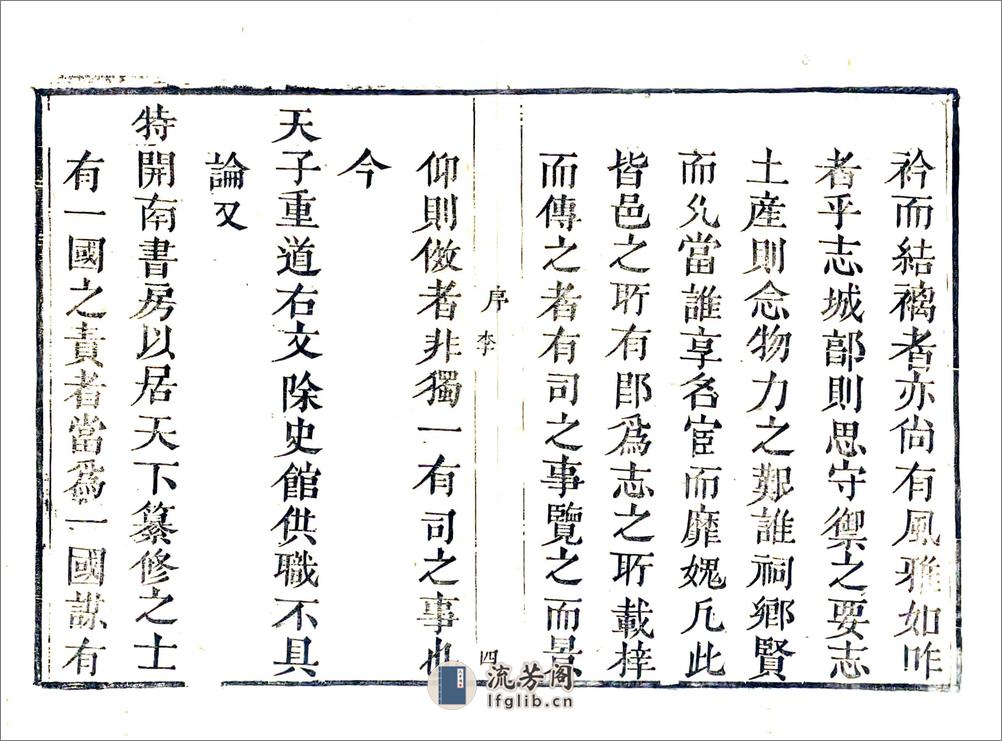 衿而結褵者亦尙有風雅如昨
者乎志城郚則思守禦之要志
土產則念物力之艱誰祠鄉賢
而允當誰享名宦而靡媿凡此
皆邑之所有卽爲志之所載梓
而傳之者有司之事覽之而景
序 李
四
仰則倣者非獨一有司之事也
今
天子重道右文除史館供職不具
論又
特開南書房以居天下纂修之士
有一國之責者當爲一國謀有
流芳阁
lfglib.cn